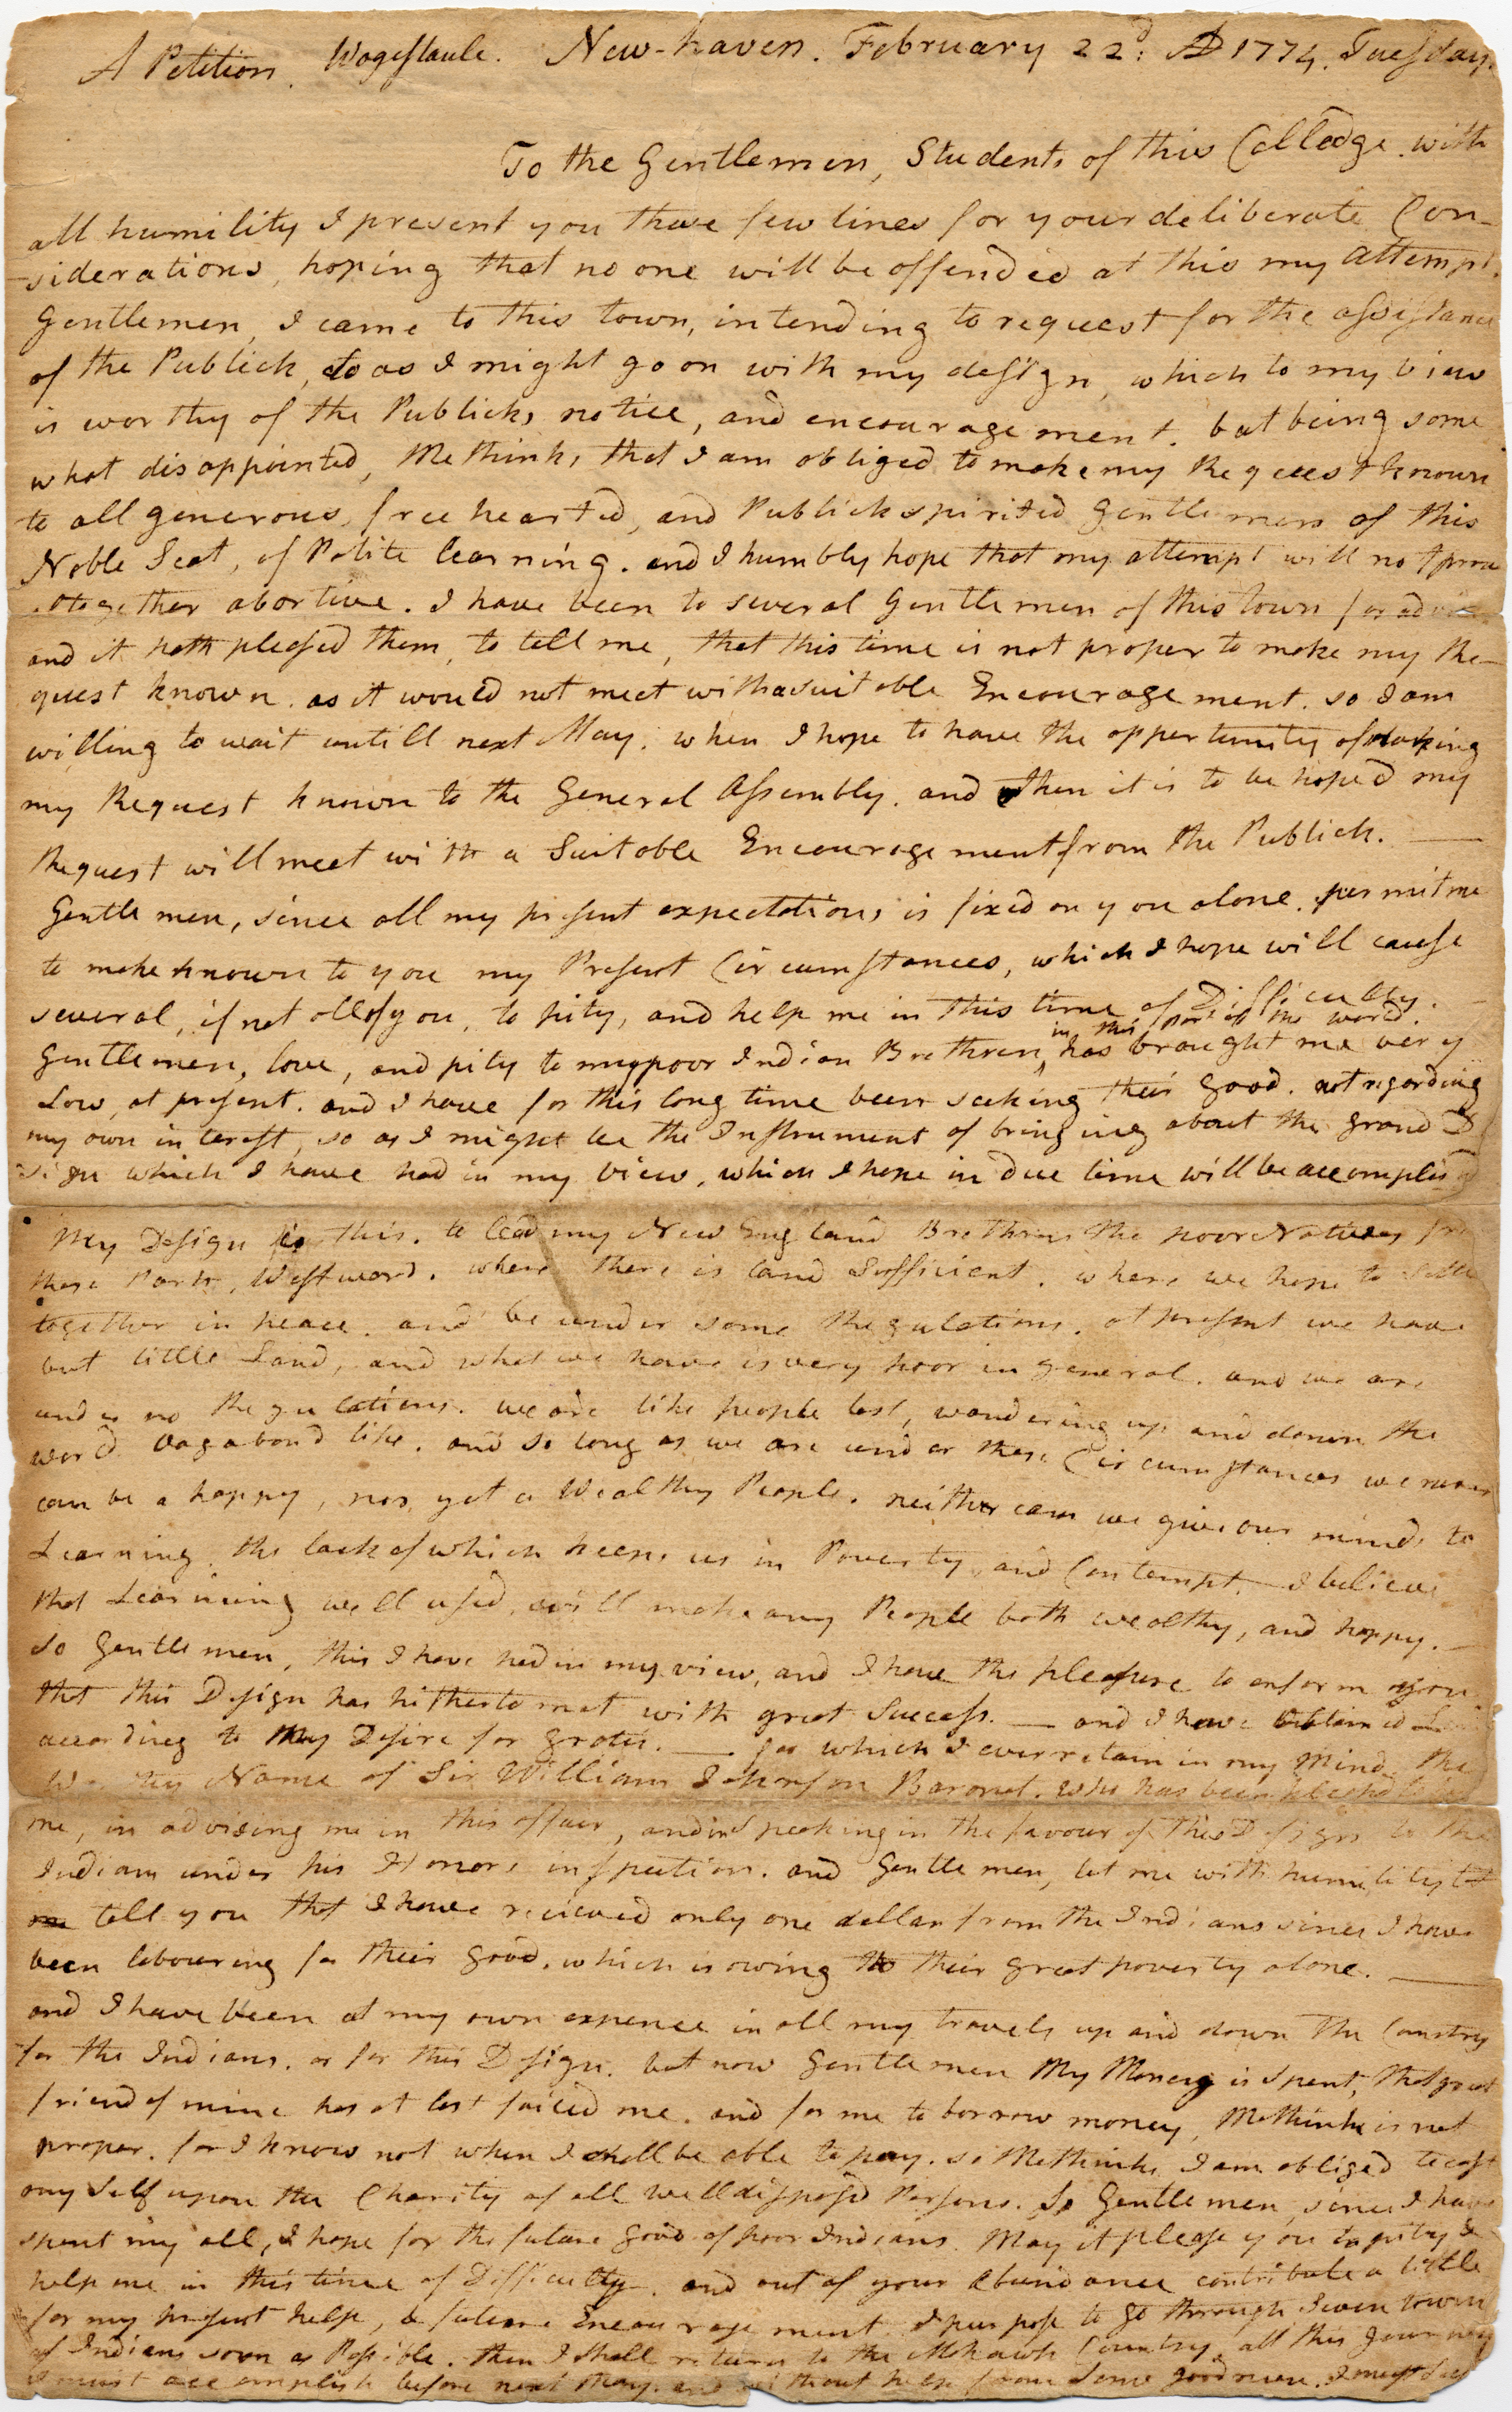 A Petition. Wogestaule. New-haven. February 22d: AD 1774. Tuesday.
To the Gentlemen, Students of this Colledge. with
all humility I present you these few lines for your deliberate Con-
-siderations, hoping that no one will be offended at this my attempt.
Gentlemen, I came to this town, intending to request for the assistance
of the Publick, so as I might go on with my design, which to my view
is worthy of the Publicks notice, and encouragement. but being some
what disappointed, Methinks that I am obliged to make my Request known
to all generous, free hearted, and Publick spirited Gentlemen of this
Noble Seat, of Polite learning. and I humbly hope that my attempt will not prove
altogether abortive. I have been to several Gentlemen of this town for advice
and it hath pleased them, to tell me, that this time is not proper to make my Re-
quest known. as it would not meet with a suitable Encouragement. so I am
willing to wait untill next May. when I hope to have the opportunity of making
my Request known to the General Assembly. and then it is to be hoped my
Request will meet with a Suitable Encouragement from the Publick. —
Gentlemen, since all my present expectations is fixed on you alone. permit me
to make known to you my Present Circumstances, which I hope will cause
several, if not all of you, to pity, and help me in this time of Difficulty. -
Gentlemen, love, and pity to my poor Indian Brethren, in this part of the world. has brought me very
Low, at present. and I have for this long time been seeking their Good. not regarding
my own interest, so as I might be the Instrument of bringing about the grand De
sign which I have had in my view, which I hope in due time will be accomplis'd
My Design is this. to lead my New England Brethren the poor Natives from
these Parts, Westward. where there is land Sufficient. where we hope to settle
together in peace. and be under some Regulations. at present we have
but little Land, and what we have is very poor in general. and we are
under no Regulations. we are like people lost, wandering up and down the
word vagabond like. and so long as we are under these Circumstances we never
can be a happy, nor yet a Wealthy People. neither can we give our minds to
Learning. the lack of which keeps us in Poverty, and Contempt. — I believe
that Learning well used, will make any People both wealthy, and happy. —
So Gentlemen, this I have had in my view, and I have the pleasure to enform you
that this Design has hitherto met with great Success. — and I have obtained Land
according to My Desire for gratis. — for which I ever retain in my Mind the
Worthy Name of Sir William Johnson Baronet. who has been pleased to help
me, in advising me in this affair, and in Speaking in the favour of this Design to the
Indians under his Honors inspection. and Gentlemen, let me with humility
tell you that I have recieved only one dollar from the Indians since I have
been labouring for their good. which is owing to their great poverty alone. —
and I have been at my own expence in all my travels up and down the Country
for the Indians. or for this Design. but now Gentlemen My Money is Spent, that great
friend of mine has at last failed me. and for me to borrow money, Methinks is not
proper. for I know not when I shall be able to pay. so Methinks, I am obliged to cast
my Self upon the Charity of all well disposed Persons. So Gentlemen, since I have
spent my all, I hope for the future good of poor Indians. May it please you to pity &
help me in this time of Difficulty. and out of your abundance contribute a little
for my present help, & future Encouragement. I purpose to go through Seven towns
of Indians soon as Possible. then I shall return to the Mohawk Country. all this Journey
I must accomplish before next May. and without help from Some good men. I must